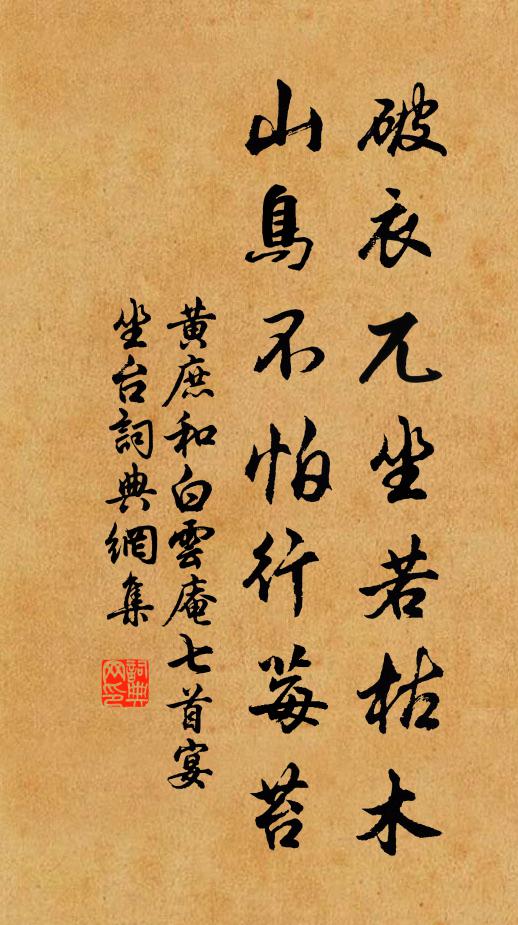 破衣兀坐若枯木
山鳥不怕行莓苔
黃庶和白雲庵七首宴
坐台詞典網集
詞典网印